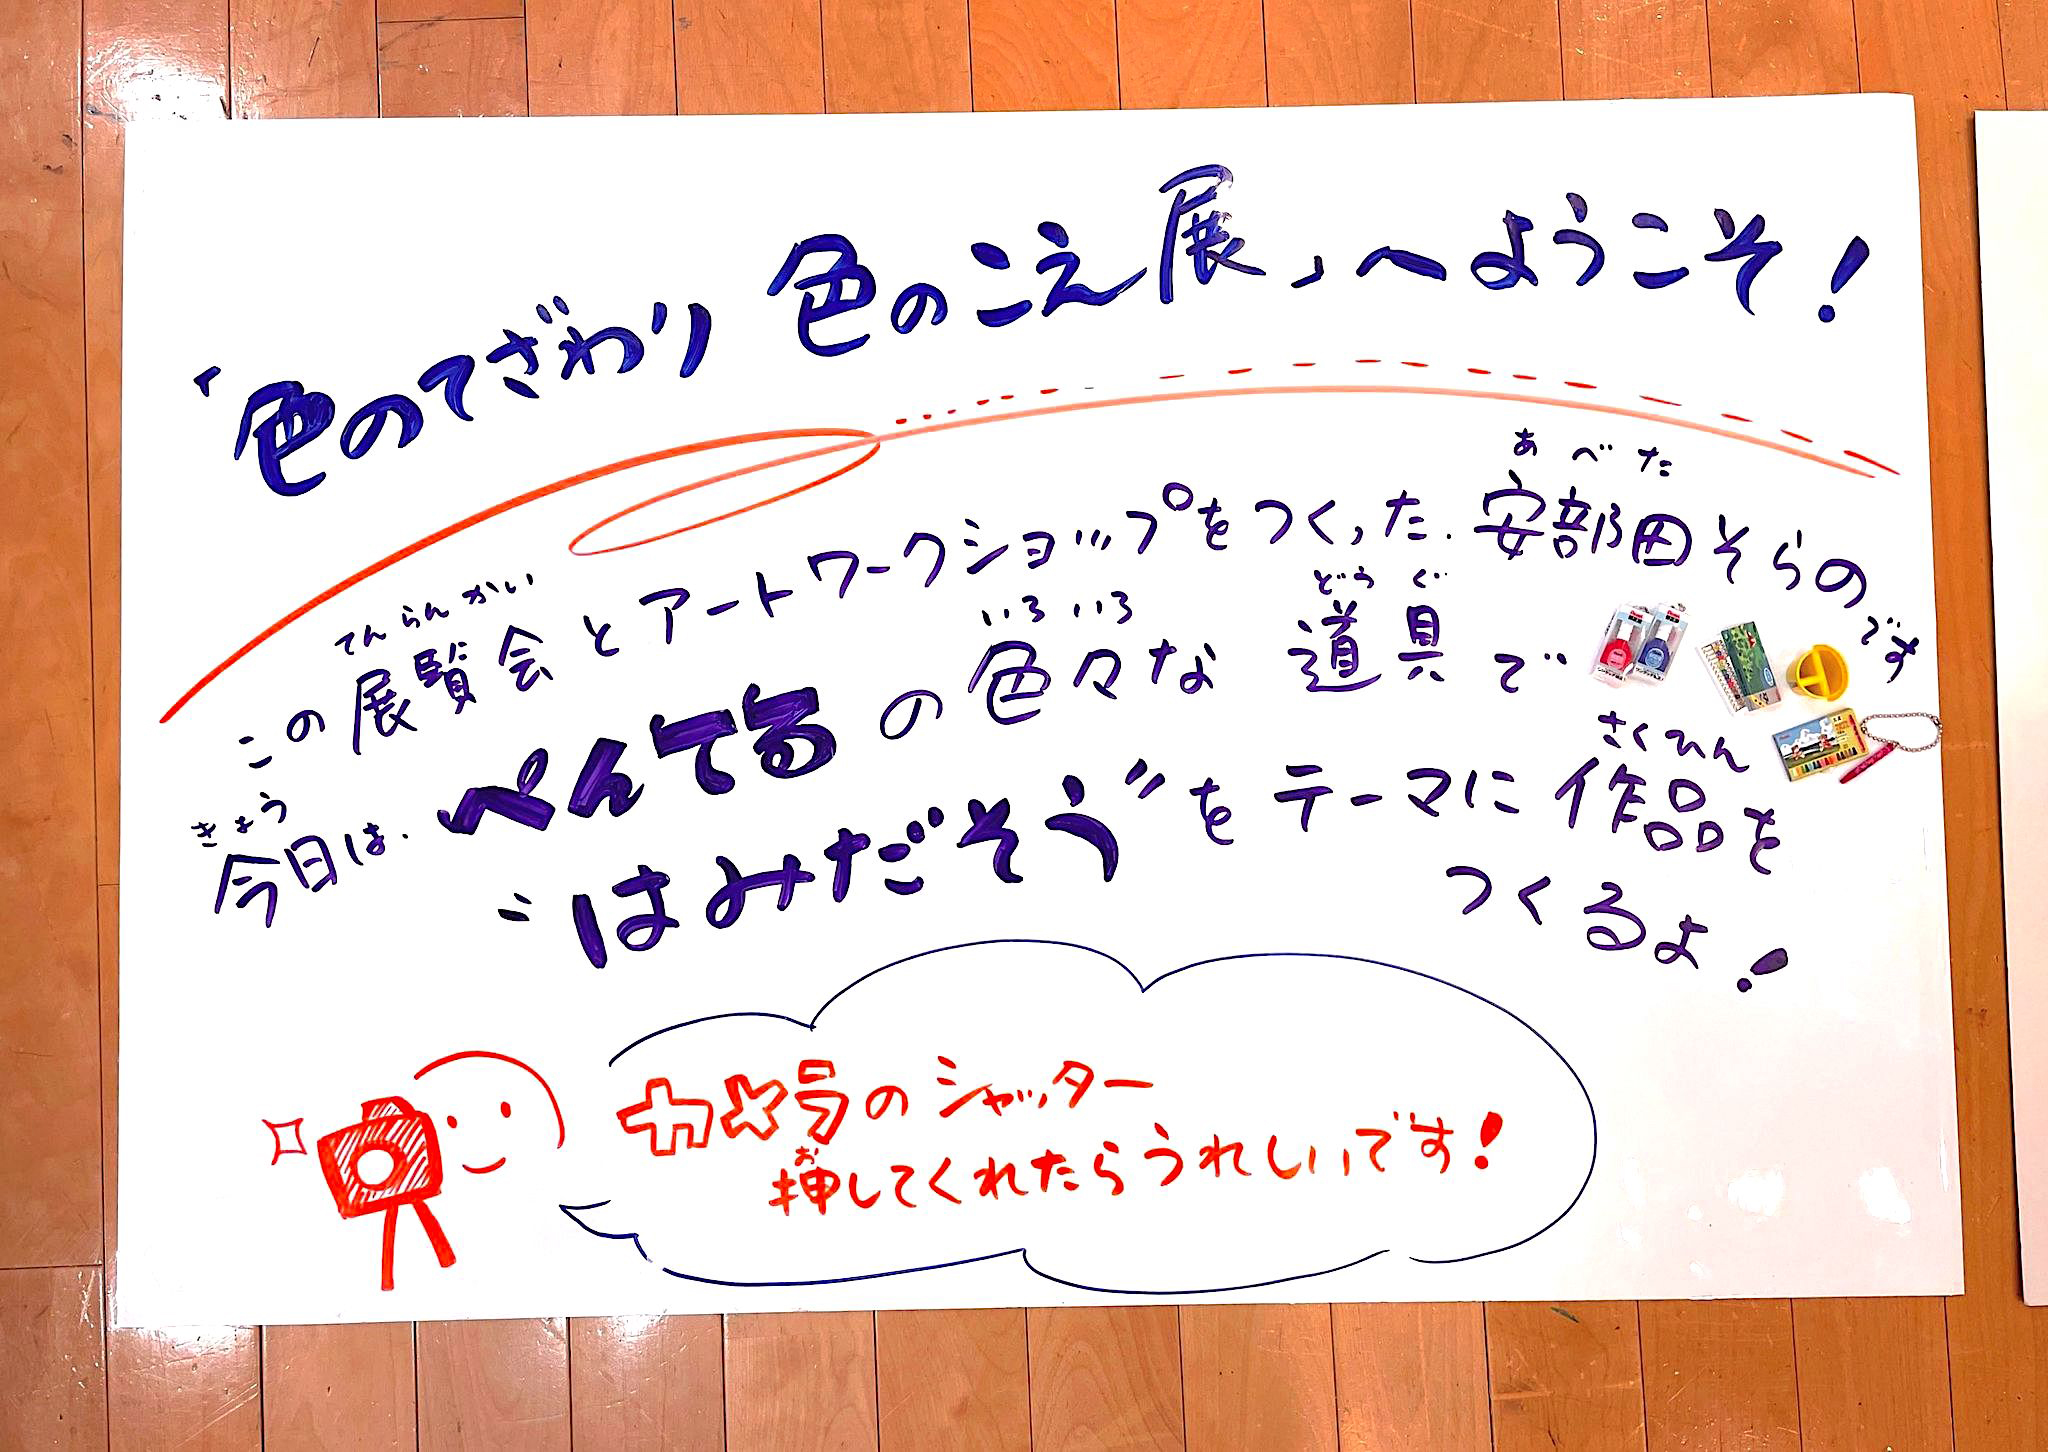 「色のてざわり 色のこえ展」へようこそ!
あべた
てんらんかい
この展覧会とアートワークショップをつくった.安部田そらのです
いろいろ どうぐ
きょう
今日は.ぺんてるの色々な道具で
さくひん
"はみだそう"をテーマに作品を
つくるよ!
カメラのシャッター
お
押してくれたらうれしいです!